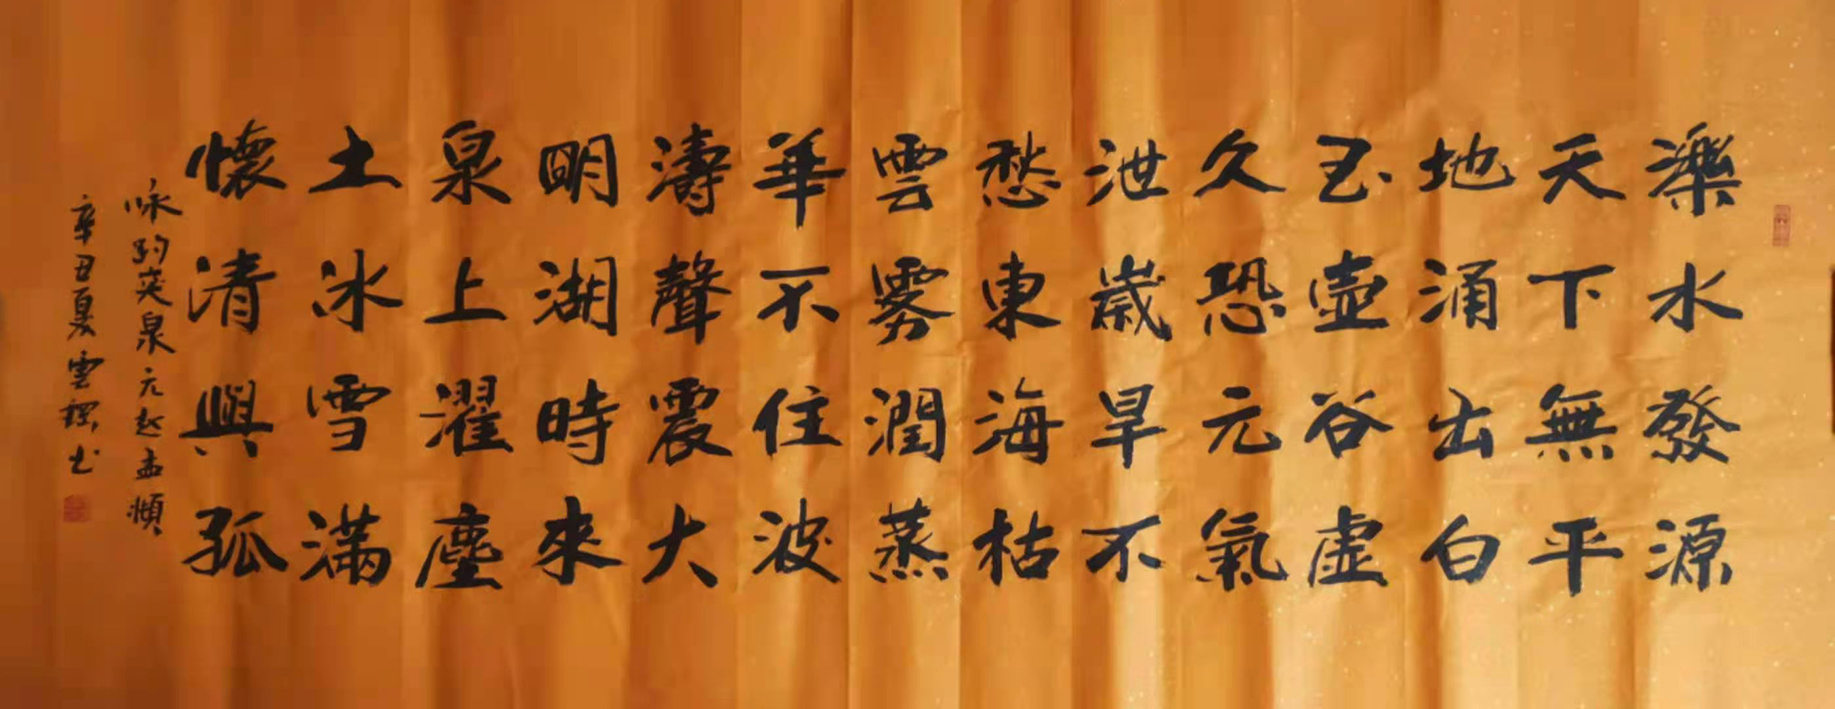 濼水發源
天下無平
地涌出白
玉壺谷虚
久恐元氣
泄歲旱不
愁東海枯
雲雾潤蒸
華不住波
濤聲震大
明湖時來
泉上濯塵
土冰雪滿
懷清興孤
咏趵突泉元赵孟頫
辛丑夏雲